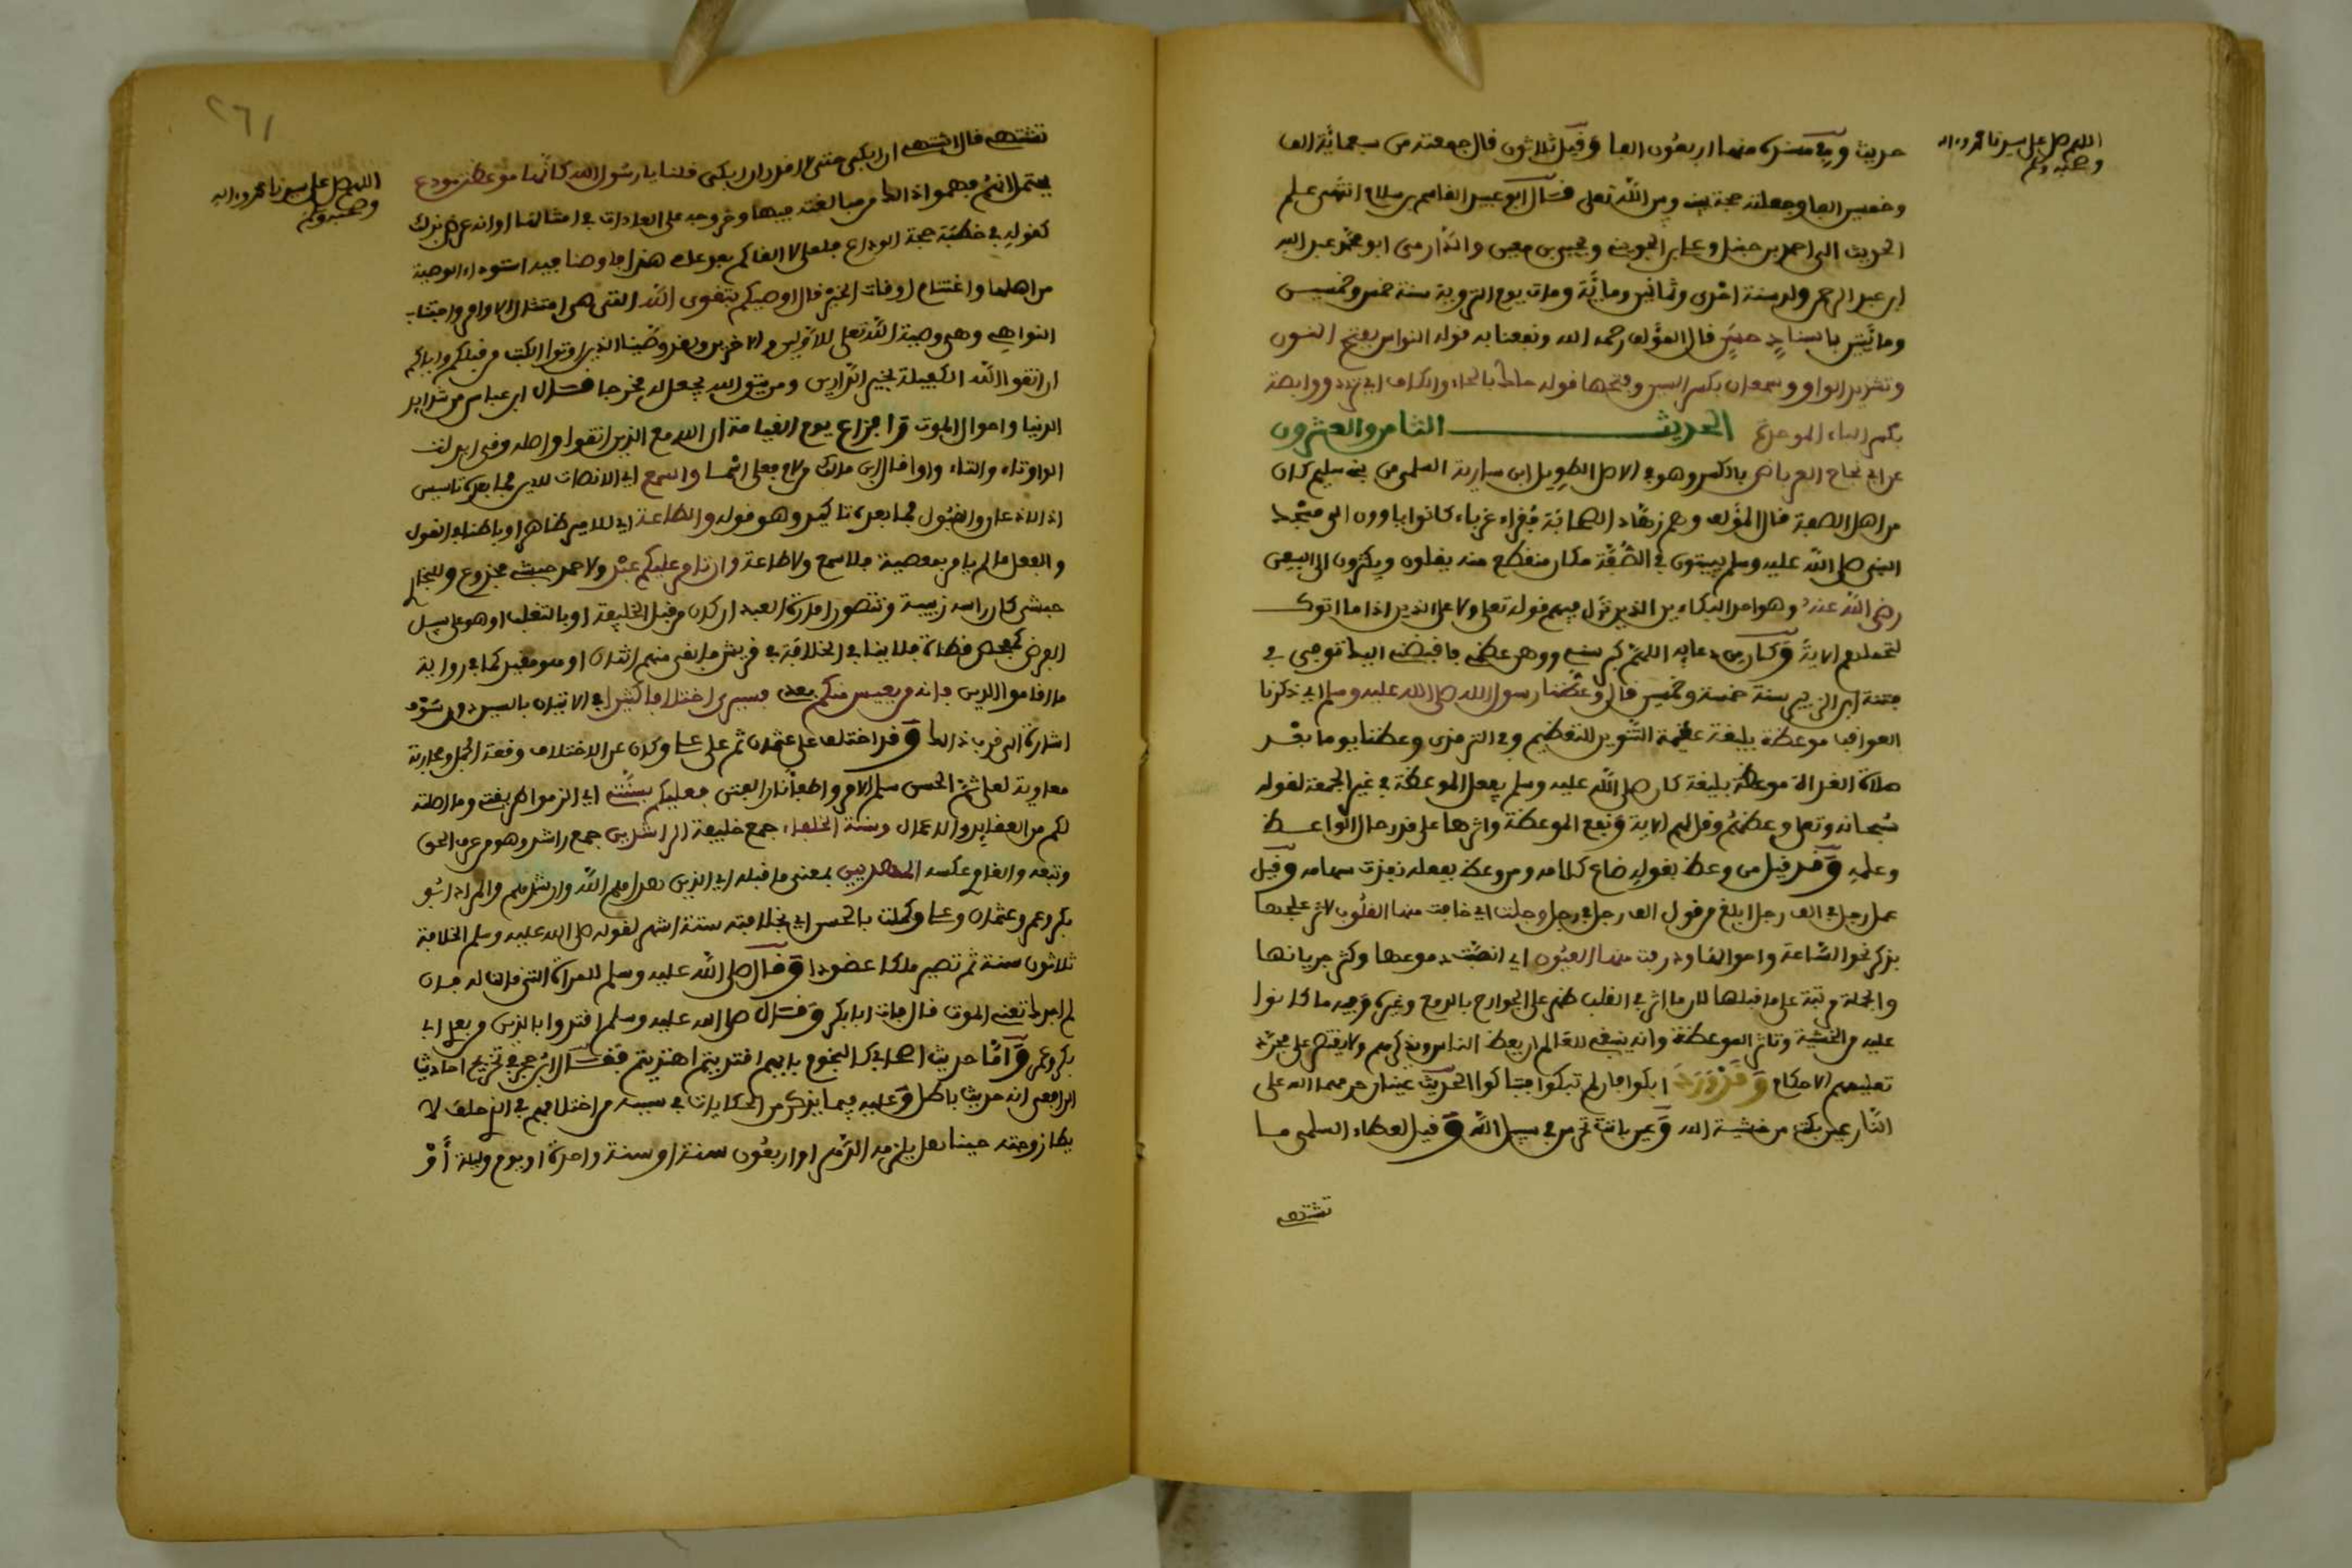 اللهم صل على سيدنا محمد وءاله
وصحبه وسلم
حديث وفي مسنده منها اربعون الفا وقيل ثلاثون قال جمعته من سبعمائة الف
وخمسين الفا وجعلته حجة بيني وبين الله تعلى قال ابو عبيد القاسم بن سلام انتهى علم
الحديث الى احمد بن حنبل وعلي بن المديني ويحيى بن معين والدارمي ابو محمد عبد الله
ابن عبد الرحمن ولد سنة احدى وثمانين ومائة ومات يوم التروية سنة خمس وخمسين
ومائتين باسناد حسن قال المؤلف رحمه الله ونفعنا به قوله النواس بفتح النون
وتشديد الواو وسمعان بكسر السين وفتحها قوله حاك بالحاء والكاف اي تردد ووابصة
بكسر الباء الموحدة الحديث الثامن والعشرون
عن ابي نجاح العرباض بالكسر وهو في الاصل الطويل ابن سارية السلمي من بني سليم كان
من اهل الصفة قال المؤلف وهم زهاد الصحابة فقراء غرباء كانوا ياوون الى مسجد
النبي صلى الله عليه وسلم يبيتون في الصفة مكان منقطع منه يقلون ويكثرون الى السبعين
رضي الله عنه وهو احد البكاءين الذين نزل فيهم قوله تعلى ولا على الذين اذا ما اتوك
لتحملهم الاية وكان من دعايه اللهم كبر سني ووهن عظمي فاقبضني اليك توفي في
فتنة ابن الزبير سنة خمسة وخمسين قال وعظنا رسول الله صلى الله عليه وسلم اي ذكرنا
العواقب موعظة بليغة عظيمة التنوير للتعظيم وفي الترمذي وعظنا يوما بعد
صلاة الغداة موعظة بليغة كان صلى الله عليه وسلم يفعل الموعظة في غير الجمعة لقوله
سبحانه وتعلى وعظهم وقل لهم الاية ونفع الموعظة واثرها على قدر حال الواعظ
وعلمه وقد قيل من وعظ بقوله ضاع كلامه ومن وعظ بفعله نفذت سهامه وقيل
عمل رجل في الف رجل ابلغ من قول الف رجل في رجل وجلت اي خافت منها القلوب لاثر عليها
بذكر نحو الساعة واحوالها وذرفت منها العيون اي انصبت دموعها وكثر جريانها
والجملة مرتبة على ما قبلها لان ما اثر في القلب ظهر على الجوارح بالدمع وغيره وفيه ما كانوا
عليه من الخشية وتاثر الموعظة وانه ينبغي للعالم ان يعظ الناس ويذكرهم ولا يقتصر على مجرد
تعليمهم الاحكام وقد ورد ابكوا فان لم تبكوا فتباكوا الحديث عينان حرمهما الله على
النار عين بكت من خشية الله وعين باتت تحرس في سبيل الله وقيل لعطاء السلمي ما
تشتهي
٢٦١
اللهم صل على سيدنا محمد وءاله
وصحبه وسلم
تشتهي قال اشتهي ان ابكي حتى لا اقدر ان ابكي قلنا يا رسول الله كانها موعظة مودع
يحتمل انهم فهموا ذالك من مبالغته فيها وخروجه على العادات في امثالها او انه عرض بذلك
كقوله في خطبة حجة الوداع فلعلي لا القاكم بعد عامي هذا فاوصنا فيه استدعاء الوصية
من اهلها واغتنام اوقات الخير قال اوصيكم بتقوى الله التي هي امتثال الاوامر واجتناب
النواهي وهي وصية الله تعلى للاولين والاخرين ولقد وصينا الذين اوتوا الكتب من قبلكم واياكم
ان اتقوا الله الكفيلة بخير الدارين ومن يتق الله يجعل له مخرجا قال ابن عباس من شدايد
الدنيا واهوال الموت وافزاع يوم القيامة ان الله مع الذين اتقوا واصله وقى ابدلت
الواو تاء والتاء واوا قال ابن مالك ولام فعلى اسما والسمع اي الانصات للامر فما بعده تاسيس
اذ الاذعان والقبول فما بعده تاكيد وهو قوله والطاعة اي للامير ظاهرا وباطنا في القول
والفعل ما لم يامر بمعصية فلا سمع ولا طاعة وان تامر عليكم عبد ولاحمد حبشي مجدوع وللبخاري
حبشي كان راسه زبيبة وتتصور امارة العبد ان كان من قبل الخليفة او بالتغلب او هو على سبيل
الفرض كمفحص قطاة فلا ينافي الخلافة في قريش ما بقي منهم اثنان او هو مقيد كما في رواية
ما اقاموا الدين فانه من يعيش منكم بعدي فسيرى اختلافا كثيرا اي الاتيان بالسين دون سوف
اشارة الى قرب ذالك وقد اختلف على عثمان ثم على علي وكان عن الاختلاف وقعة الجمل ومحاربة
معاوية لعلي ثم الحسن سلم الامر واطفأ نار الفتن فعليكم بسنتي اي الزموا طريقتي وما اصلته
لكم من العقايد والاعمال وسنة الخلفاء جمع خليفة الراشدين جمع راشد وهو من عرف الحق
وتبعه والغاوي عكسه المهديين بمعنى ما قبله اي الذين هداهم الله وارشدهم والمراد ابو
بكر وعمر وعثمان وعلي وكملت بالحسن اي بخلافته ستة اشهر لقوله صلى الله عليه وسلم الخلافة
ثلاثون سنة ثم تصير ملكا عضودا وقال صلى الله عليه وسلم للمراة التي قالت له فان
لم اجدك تعني الموت قال فات ابا بكر وقال صلى الله عليه وسلم اقتدوا بالذين من بعدي ابي
بكر وعمر واما حديث اصحابي كالنجوم بايهم اقتديتم اهتديتم فقال ابن حجر في تخريج احاديث
الرافعي انه حديث باطل وعليه فيما يذكر من الحكايات في سببه من اختلافهم في الرجل حلف لا
يطا زوجته حينا هل يلزمه الدهر او اربعون سنة او سنة واحدة او يوم وليلة أو